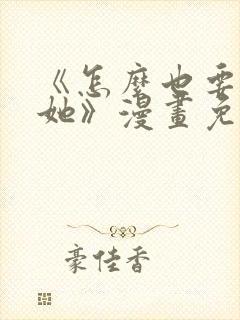 《怎麼也要
她》漫畫免
豪佳香